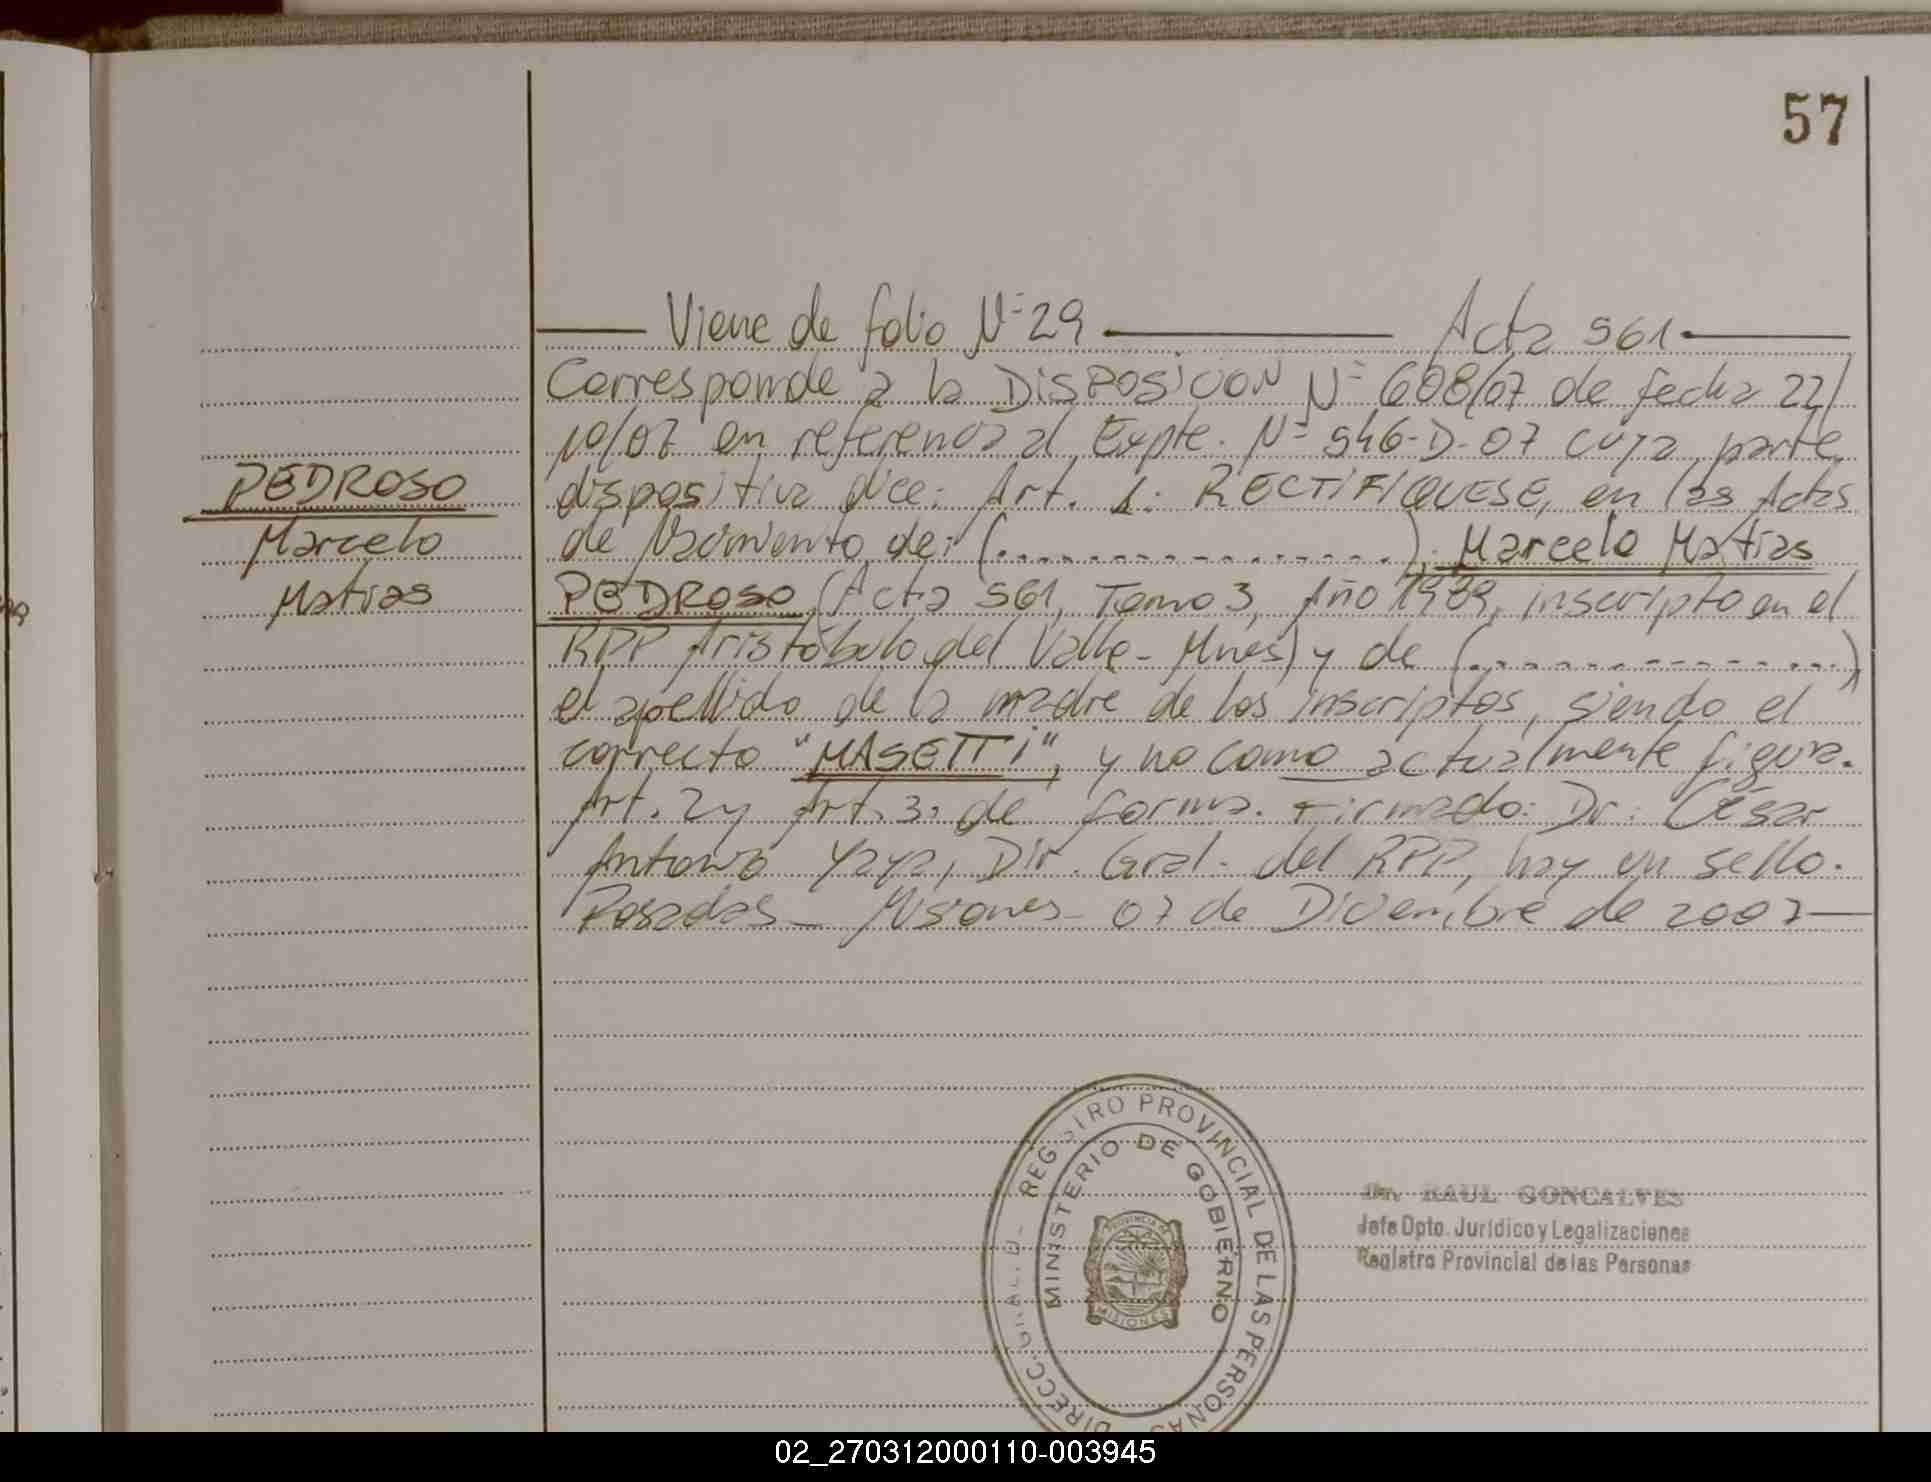 57
Viene de folio Nº 29 Acta 561
Corresponde a la DISPOSICION Nº 608/07 de fecha 22/
10/07 en referencia al Expte. Nº 546-D-07 cuya parte
dispositiva dice: Art. 1: RECTIFIQUESE, en las Actas
de Nacimiento de: (.................): Marcelo Matias
PEDROSO (Acta 561, Tomo 3, Año 1989, inscripto en el
RPP Aristóbulo del Valle - Mnes) y de (...............)
el apellido de la madre de los inscriptos, siendo el
correcto "MASETTI", y no como actualmente figura.
Art. 2 y Art. 3: de forma. Firmado: Dr. César
Antonio Yaya, Dir. Gral. del RPP, hay un sello.
Posadas - Misiones - 07 de Diciembre de 2007
PEDROSO
Marcelo
Matias
DIRECC. GRAL. D. - REGISTRO PROVINCIAL DE LAS PERSONAS
MINISTERIO DE GOBIERNO
PROVINCIA DE
MISIONES
Dr. RAUL GONCALVES
Jefe Dpto. Jurídico y Legalizaciones
Registro Provincial de las Personas
02_270312000110-003945